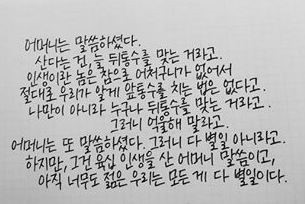 어머니는 말씀하셨다.
산다는 건, 늘 뒤통수를 맞는 거라고.
인생이란 놈은 참으로 어처구니가 없어서
절대로 우리가 알게 앞통수를 치는 법은 없다고.
나만이 아니라 누구나 뒤통수를 맞는 거라고.
그러니 억울해 말라고.
어머니는 또 말씀하셨다. 그러니 다 별일 아니라고.
하지만, 그건 육십 인생을 산 어머니 말씀이고,
아직 너무도 젊은 우리는 모든 게 다 별일이다.